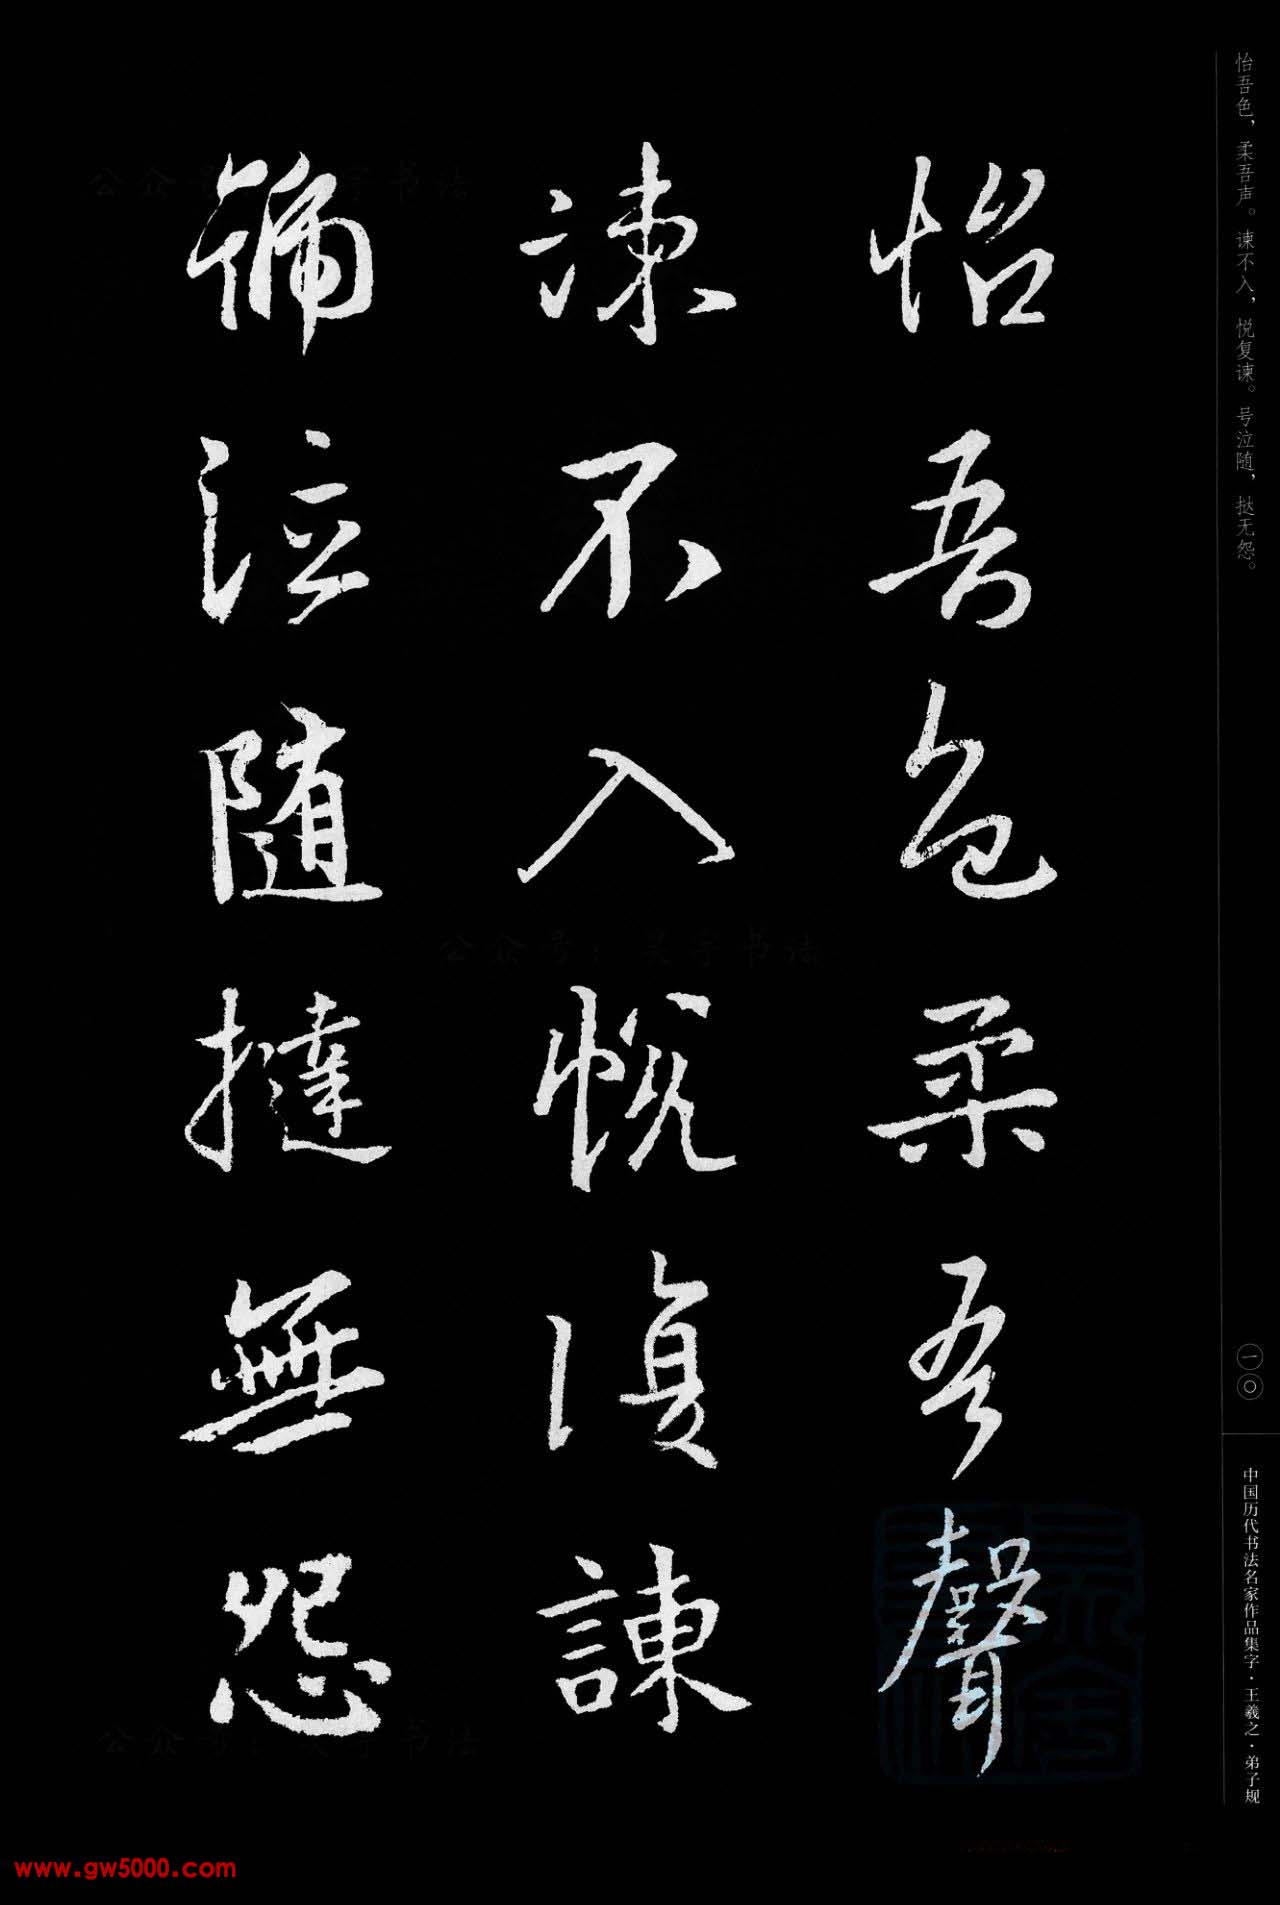 怡吾色柔吾聲
諫不入悅復諫
號泣隨撻無怨
怡吾色，柔吾声。谏不入，悦复谏。号泣随，挞无怨。
一〇
中国历代书法名家作品集字·王羲之·弟子规
公众号：昊宇书法
www.gw5000.com